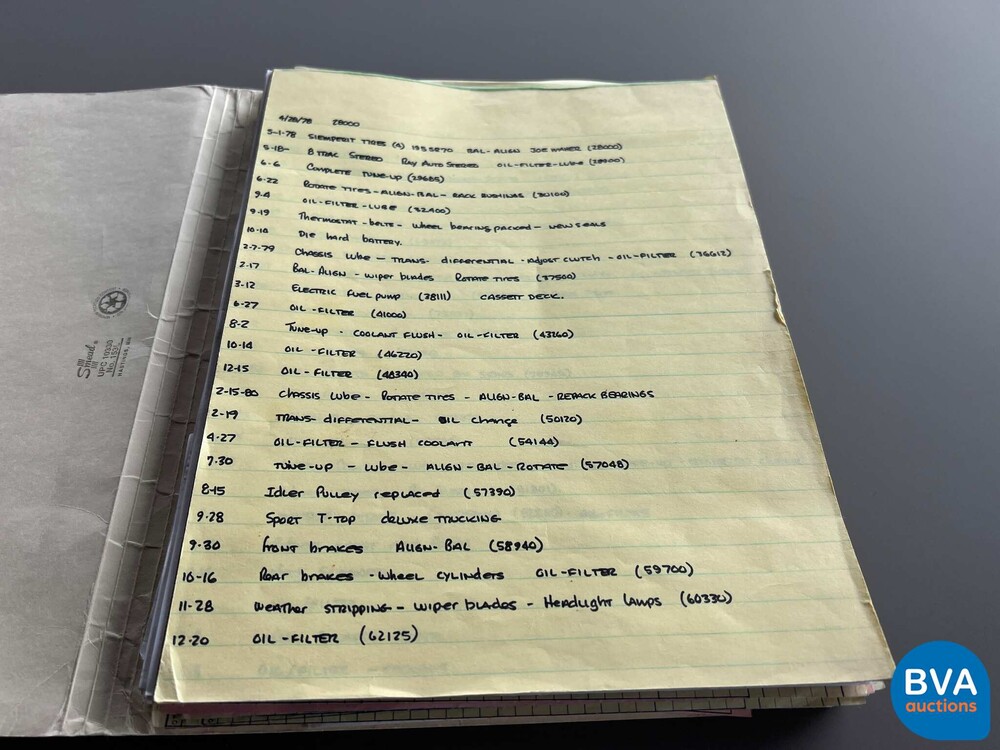 4/28/78 28000
5-1-78 SIEMPERIT TIRES (4) 195SR70 BAL-ALIGN JOE (28000)
5-18- 8 TRAC STEREO RAY AUTO STEREO OIL-FILTER-LUBE (28900)
6-6 COMPLETE TUNE-UP (29685)
6-22 ROTATE TIRES-ALIGN-BAL- RACK BUSHINGS (30100)
9-4 OIL-FILTER-LUBE (32400)
9-19 Thermostat-belts- wheel bearing packed- NEW SEALS
10-10 Die hard battery.
2-7-79 CHASSIS lube - TRANS. differential - Adjust clutch - OIL-FILTER (36612)
2-17 BAL-ALIGN - wiper blades ROTATE TIRES (37500)
3-12 ELECTRIC fuel pump (38111) CASSETT DECK.
6-27 OIL-FILTER (41000)
8-2 TUNE-UP - COOLANT FLUSH- OIL-FILTER (43260)
10-14 OIL-FILTER (46220)
12-15 OIL-FILTER (48340)
2-15-80 CHASSIS lube - ROTATE TIRES - ALIGN-BAL - REPACK BEARINGS
2-19 TRANS- differential- OIL change (50120)
4-27 OIL-FILTER - FLUSH COOLANT (54144)
7-30 TUNE-UP - lube- ALIGN-BAL-ROTATE (57048)
8-15 Idler Pulley replaced (57390)
9-28 SPORT T-TOP deluxe TRUCKING
9-30 front brakes ALIGN-BAL (58940)
10-16 Rear brakes -wheel cylinders OIL-FILTER (59700)
11-28 weather STRIPPING- wiper blades - Headlight lamps (60330)
12-20 OIL-FILTER (62125)
Smead
UPC 10330
No. 153L
HASTINGS, MN
BVA
auctions